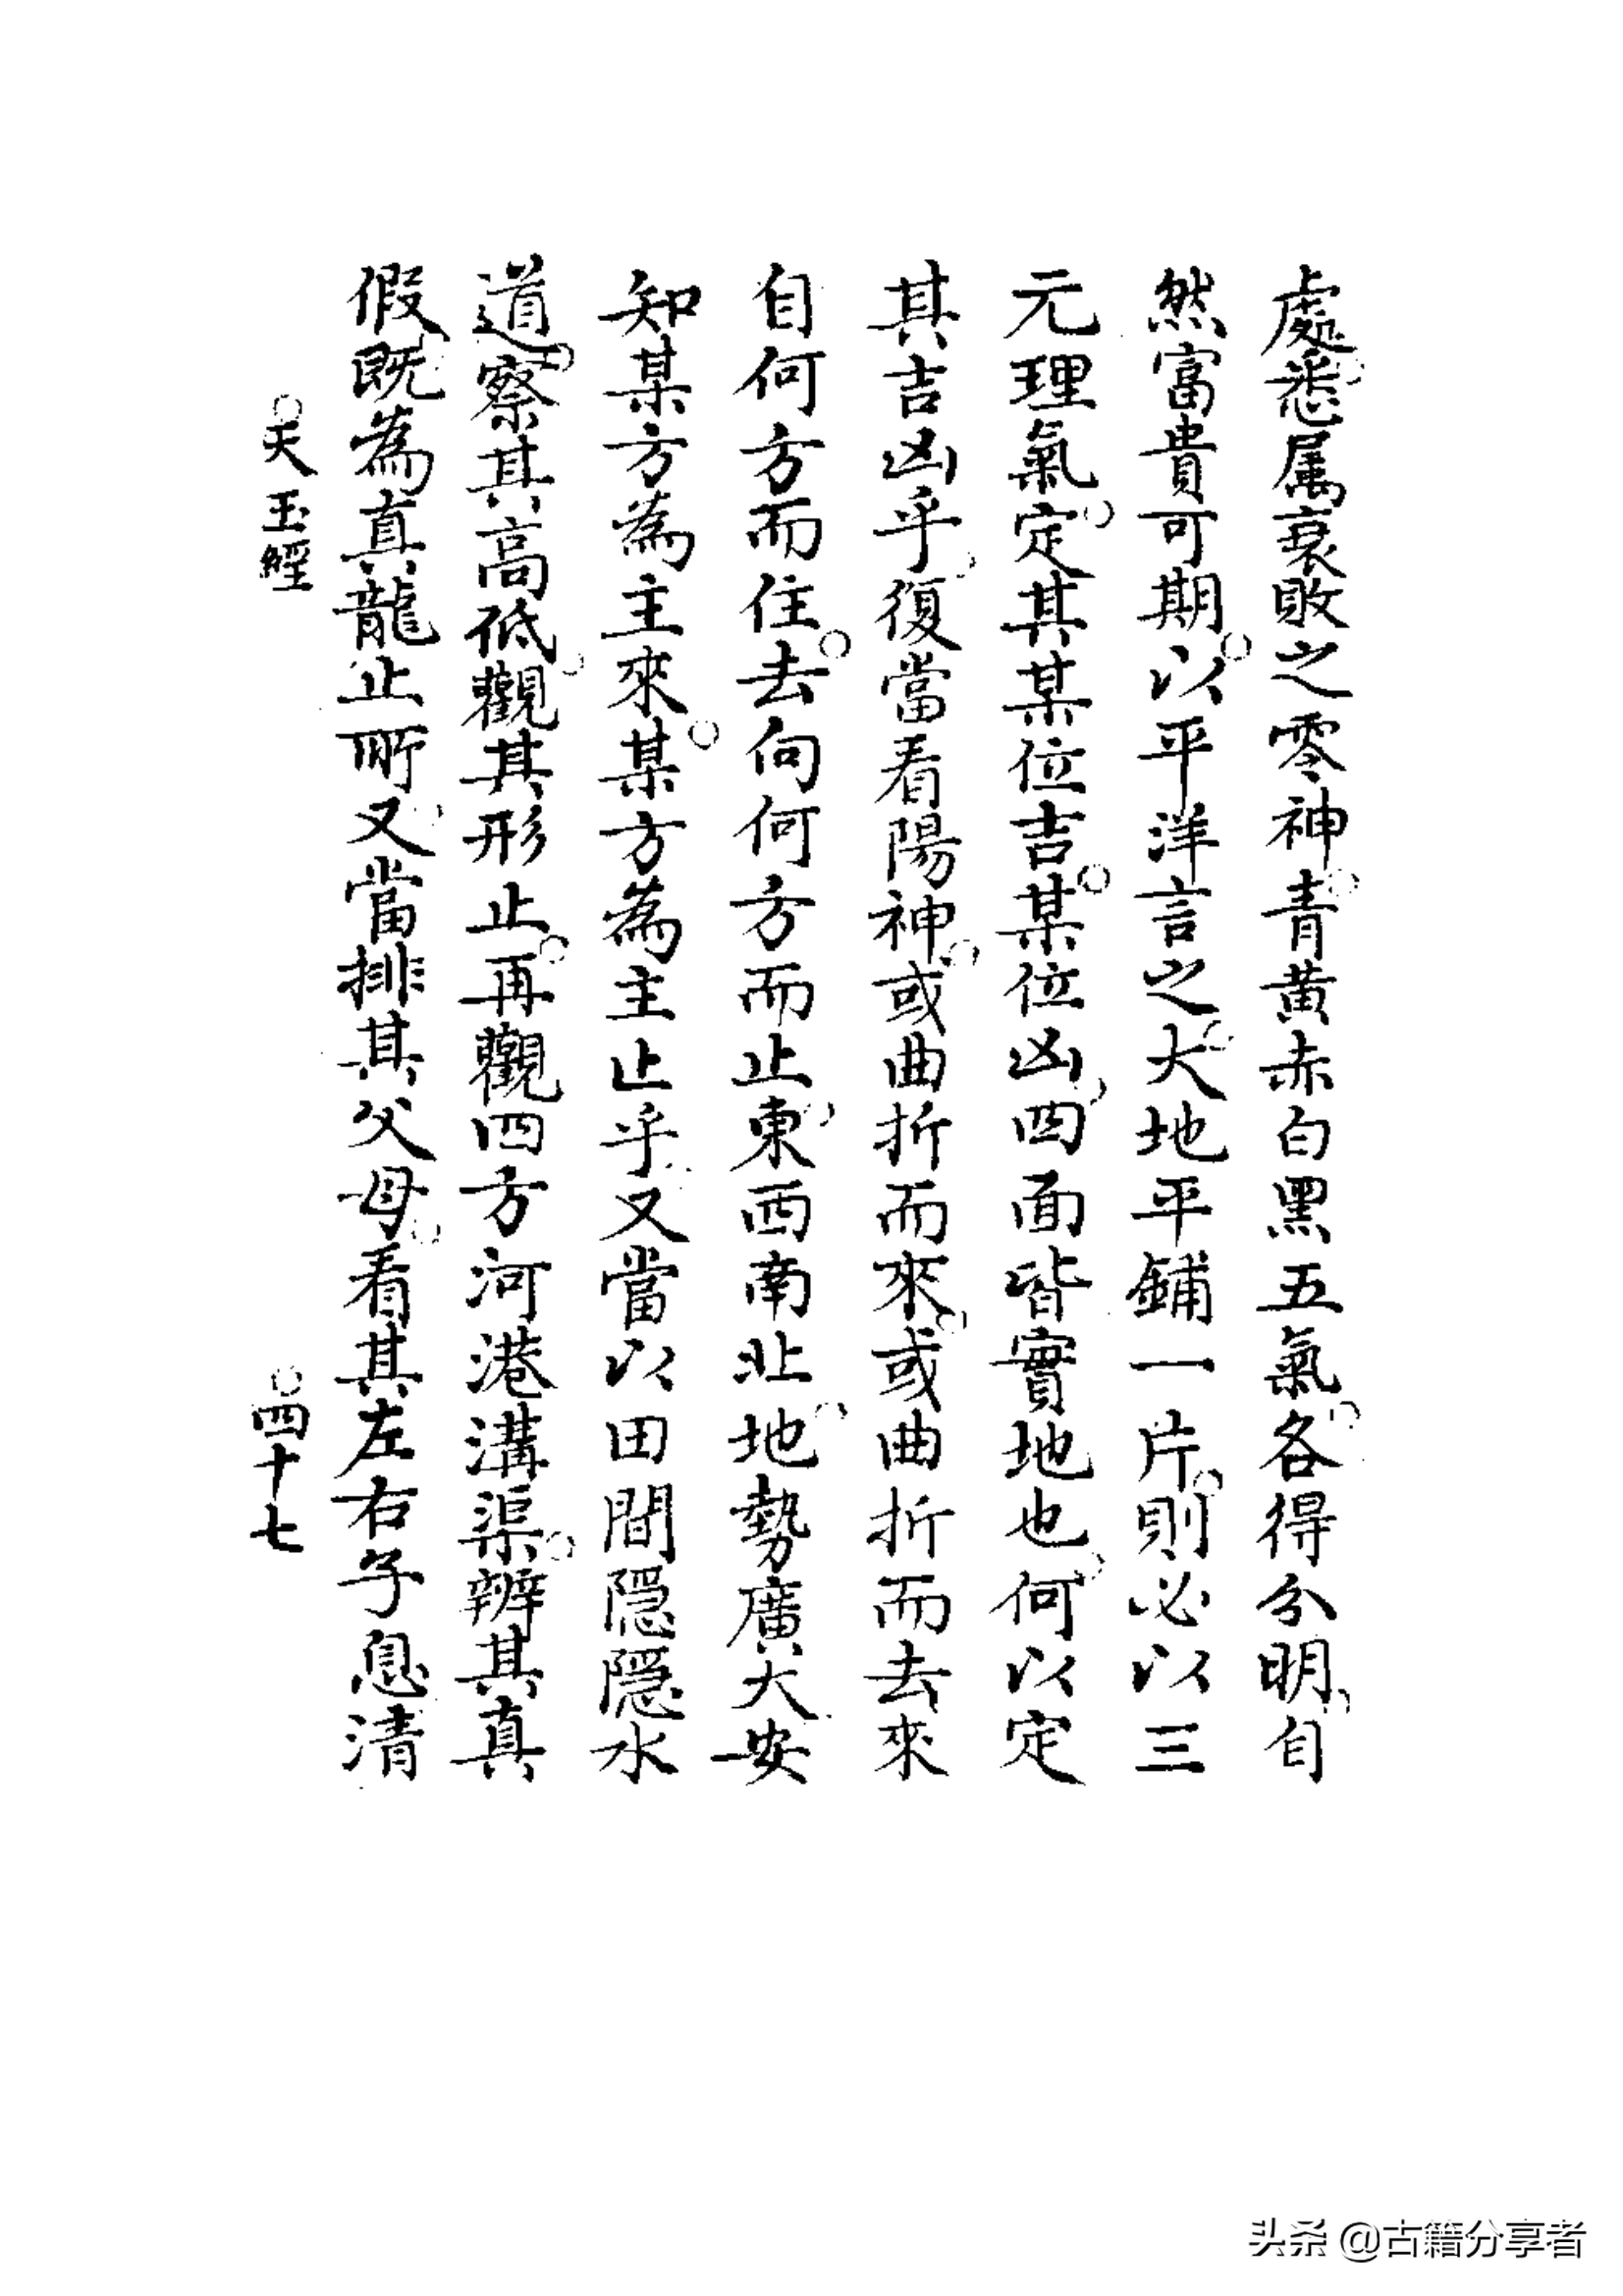 處悉属衰敗之零神青黃赤白黑五氣各得分明自
然富貴可期以平洋言之大地平鋪一片則必以三
元理氣定其某位吉某位凶四面皆實地也何以定
其吉凶乎復當看陽神或曲折而來或曲折而去來
自何方而住去向何方而止東西南北地勢廣大安
知某方為主來某方為主止乎又當以田間隱隱水
道察其高低觀其形止再觀四方河港溝渠辨其真
假既為真龍止所又當排其父母看其左右子息清
天玉經
四十七
头条 @古籍分享者